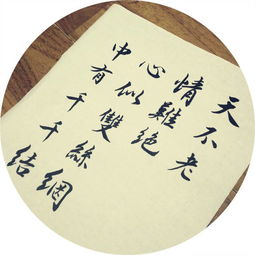 天不老
情難絕
心似雙絲網
中有千千結